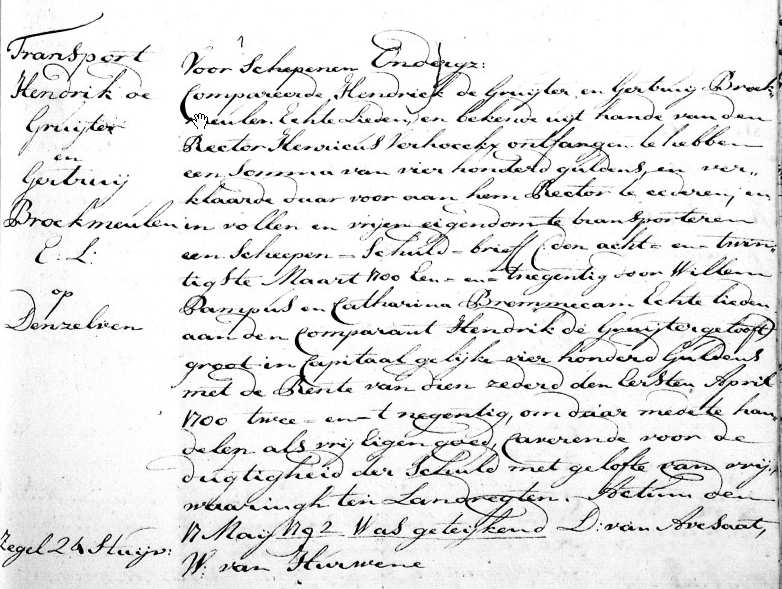 Transport
Hendrik de
Gruijter
en
Gertruij
Broekmeulen
E: L:
op
Denzelven
Zegel 24 Stuijv:
Voor Schepenen Endeijz:
Compareerde Hendriek de Gruijter en Gertruij Broek-
meulen Echte Lieden, en bekende uijt hande van den
Rector Henricus Verhoeckx ontfangen te hebben
een Somma van vier honderd guldens, en ver-
klaarde daar voor aan hem Rector te cederen, en
in vollen en vrijen eigendom te transporteren
een Scheepen-Schuld-brieff (den acht-en-twin-
tigste Maart 1700 Een-en-tnegentig door Willem
Pampus en Catharina Brommecam Echte lieden
aan den Comparant Hendrik de Gruijter gelooft)
groot in Capitaal gelijke vier honderd Guldens
met de Rente van dien zederd den Eersten April
1700 twee-en-tnegentig, om daar mede te han-
delen als vrij Eigen goed, Caverende voor de
dugtigheid der Schuld met gelofte van vrij-
waaringh ten Landregten. Actum den
17 Maij 1792 Was geteijkend D: van Avesaat,
W: van Hurwene